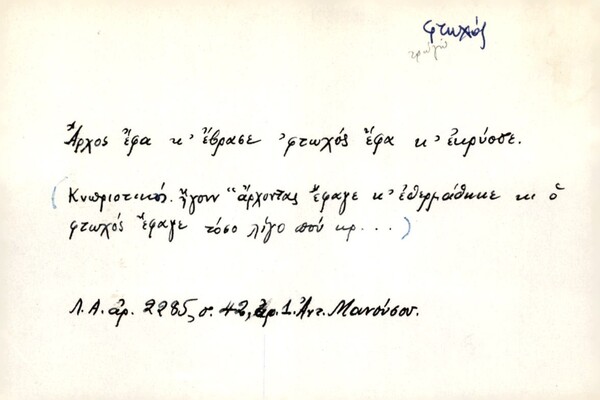 φτωχός
τρώγω
Ἄρχος ἔφα κ' ἔβρασε 'φτωχός ἔφα κ' ἐκρύσσε.
ἤγουν "ἄρχοντας ἔφαγε κ' ἐθερμάθηκε κι ὁ
φτωχός ἔφαγε τόσο λίγο πού κρ....)
Λ.Α. ἀρ. 2285, σ. 42, ἀρ. 1. Ἀντ. Μανούσου.